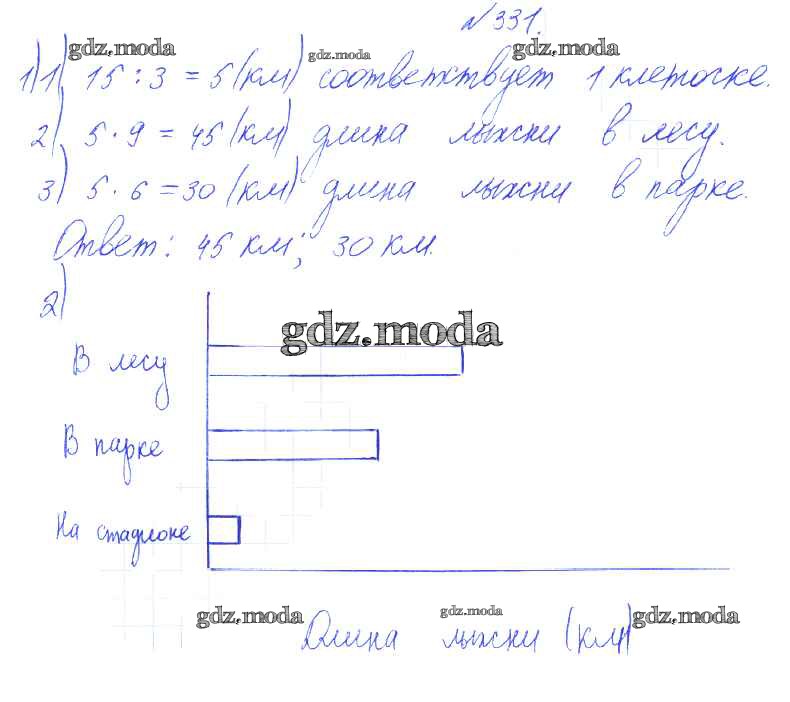 №331.
gdz.moda gdz.moda gdz.moda
1) 1) 15 : 3 = 5 (км) соответствует 1 клеточке.
2) 5 · 9 = 45 (км) длина лыжни в лесу.
3) 5 · 6 = 30 (км) длина лыжни в парке.
Ответ: 45 км; 30 км.
2)
gdz.moda
В лесу
В парке
На стадионе
gdz.moda gdz.moda gdz.moda
Длина лыжни (км)